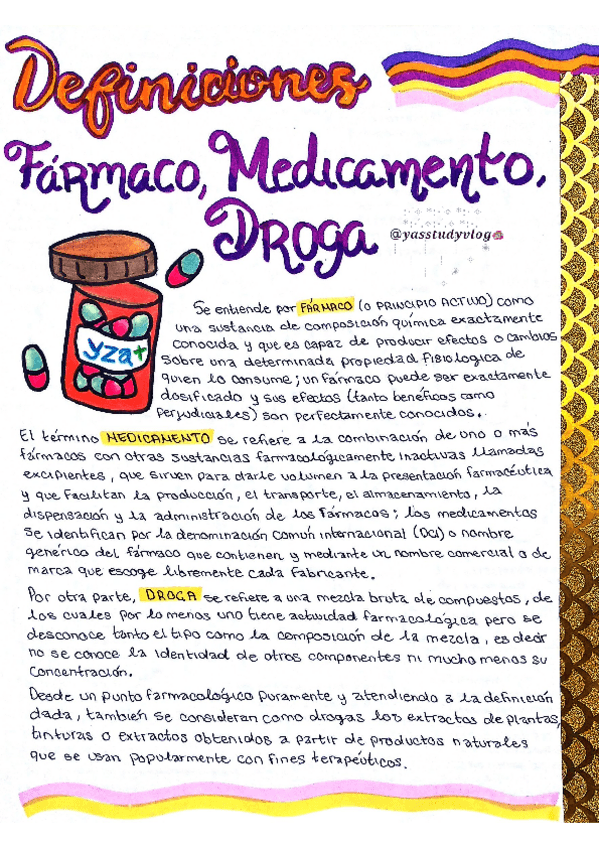 Definiciones
Fármaco, Medicamento,
Droga
@yasstudyvlog
yza+
Se entiende por FÁRMACO (o PRINCIPIO ACTIVO) como
una sustancia de composición química exactamente
conocida y que es capaz de producir efectos o cambios
sobre una determinada propiedad fisiologica de
quien lo consume; un fármaco puede ser exactamente
dosificado y sus efectos (tanto benéficos como
perjudiciales) son perfectamente conocidos.
El término MEDICAMENTO se refiere a la combinación de uno o más
fármacos con otras sustancias farmacológicamente inactivas llamadas
excipientes, que sirven para darle volumen a la presentación farmacéutica
y que facilitan la producción, el transporte, el almacenamiento, la
dispensación y la administración de los fármacos; los medicamentos
se identifican por la denominación común internacional (DCI) o nombre
genérico del fármaco que contienen y mediante un nombre comercial o de
marca que escoge libremente cada fabricante.
Por otra parte, DROGA se refiere a una mezcla bruta de compuestos, de
los cuales por lo menos uno tiene actividad farmacológica pero se
desconoce tanto el tipo como la composición de la mezcla, es decir
no se conoce la identidad de otros componentes ni mucho menos su
concentración.
Desde un punto farmacológico puramente y atendiendo a la definición
dada, también se consideran como drogas los extractos de plantas,
tinturas o extractos obtenidos a partir de productos naturales
que se usan popularmente con fines terapéuticos.